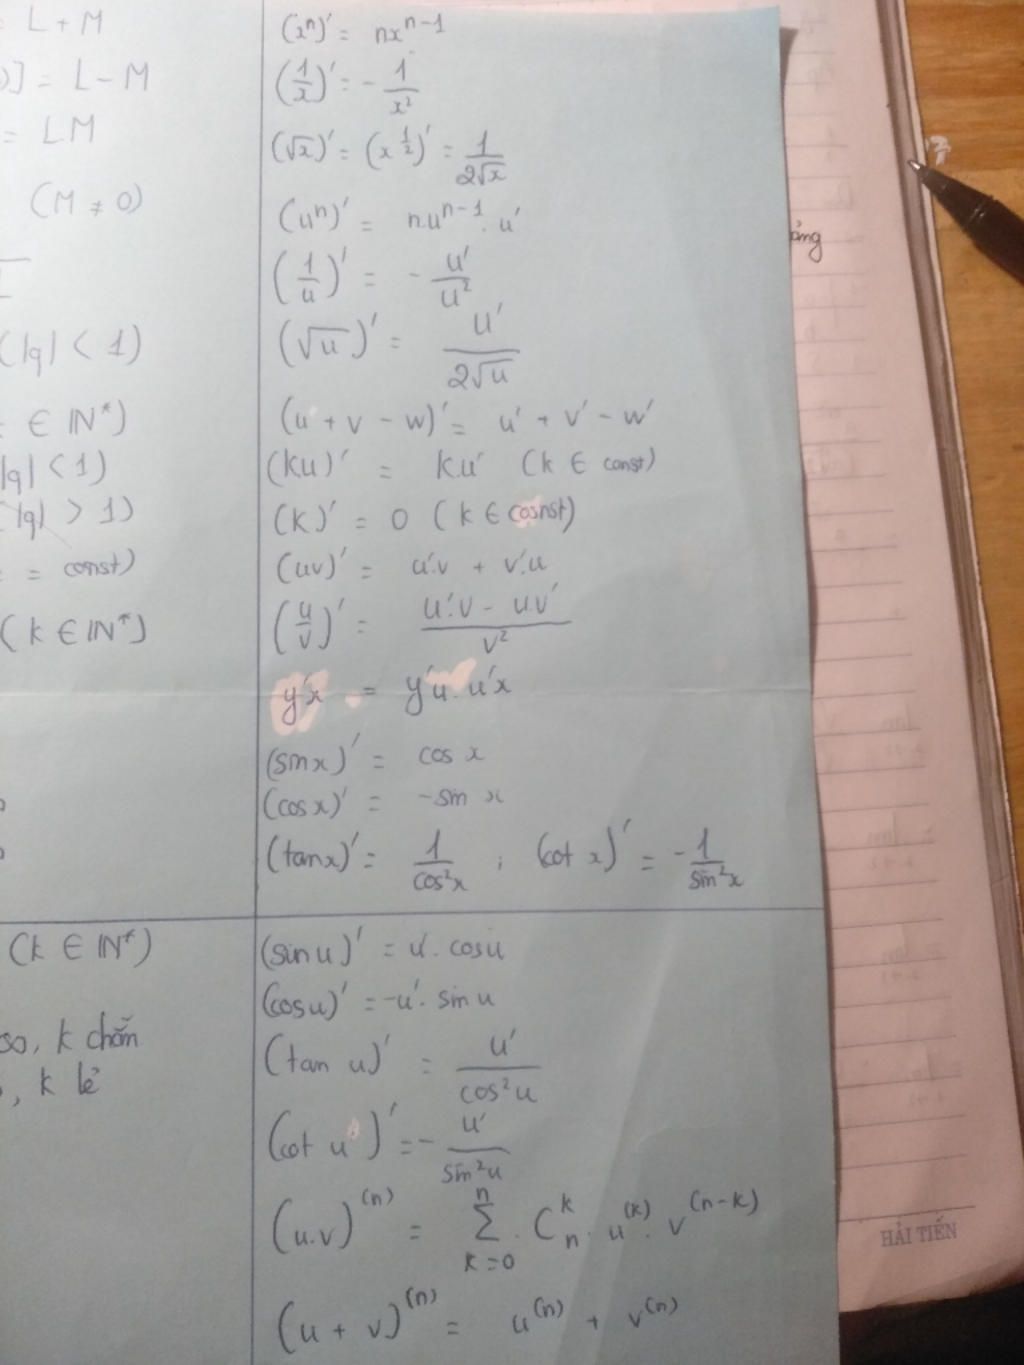 = L + M
)] = L - M
= LM
(M ≠ 0)
(|q| < 1)
∈ IN*)
|q| < 1)
(|q| > 1)
= const)
(k ∈ IN*)
(k ∈ IN*)
so, k chẵn
, k lẻ
(xⁿ)' = nxⁿ⁻¹
(1/x)' = - 1/x²
(√x)' = (x^(1/2))' = 1/(2√x)
(uⁿ)' = n.uⁿ⁻¹.u'
(1/u)' = - u'/u²
(√u)' = u'/(2√u)
(u + v - w)' = u' + v' - w'
(ku)' = k.u' (k ∈ const)
(k)' = 0 (k ∈ cosnst)
(uv)' = u'.v + v'.u
(u/v)' = (u'.v - u.v')/v²
y'x = y'u. u'x
(sinx)' = cos x
(cosx)' = -sin x
(tanx)' = 1/cos²x ; (cot x)' = - 1/sin²x
(sin u)' = u'. cosu
(cosu)' = -u'. sin u
(tan u)' = u'/cos²u
(cot u)' = - u'/sin²u
(u.v)⁽ⁿ⁾ = Σ_(k=0)^n . C_n^k . u^(k) . v^(n-k)
(u + v)⁽ⁿ⁾ = u⁽ⁿ⁾ + v⁽ⁿ⁾
HẢI TIẾN